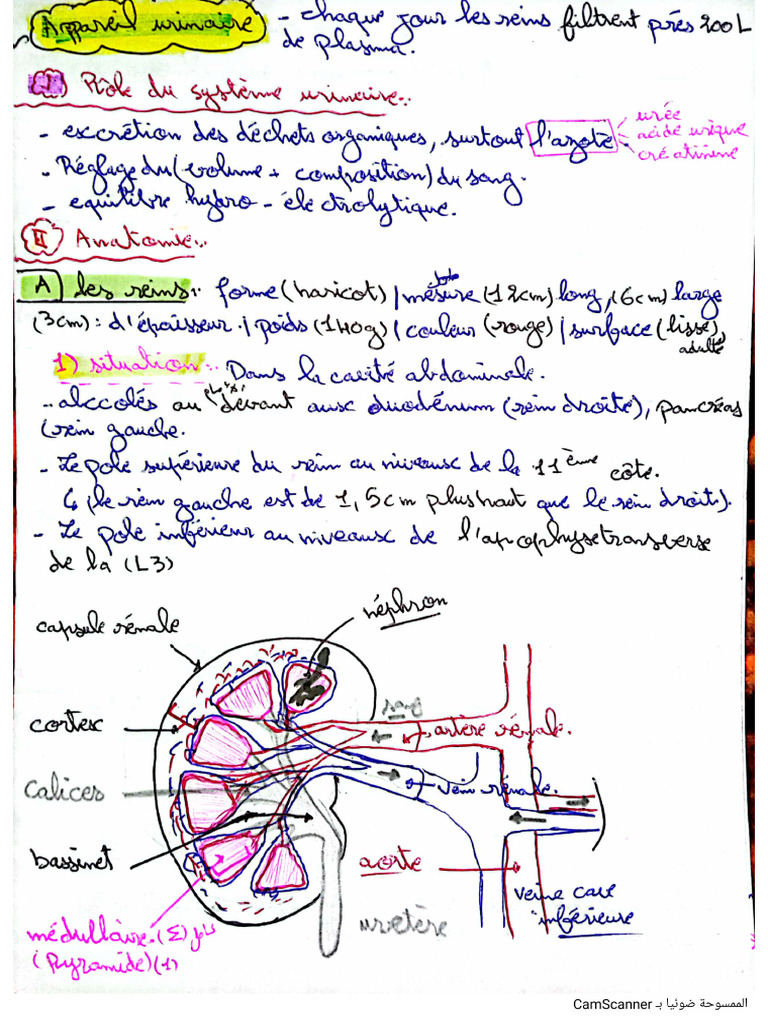 Appareil urinaire - chaque jour les reins filtrent près 200L
de plasma.
I Rôle du système urinaire..
- excrétion des déchets organiques, surtout l'azote.
urée
acide urique
créatinine
- Réglage du (volume + composition) du sang.
- equilibre hydro-électrolytique.
II Anatomie..
A) les reins.. forme (haricot) | mésure (12cm) long, (6cm) large
(3cm): d'épaisseur. | poids (140g) | couleur (rouge) | surface (lisse)
adulte
1) situation.. Dans la cavité abdominale.
.. alccolés au devant aux duodénum (rein droite), pancréas
(rein gauche.
- Le pole supérieure du rein au niveaux de la 11ème côte.
↳ (le rein gauche est de 1,5cm plus haut que le rein droit).
- Le pole inférieur au niveaux de l'apophyse transverse
de la (L3)
néphron
capsule rénale
sang
cortex
artère rénale.
calices
vein rénale.
bassinet
aorte
veine cave
inférieure
uretère
médullaire. (Σ)
(Pyramide) (1)
الممسوحة ضوئيا بـ CamScanner